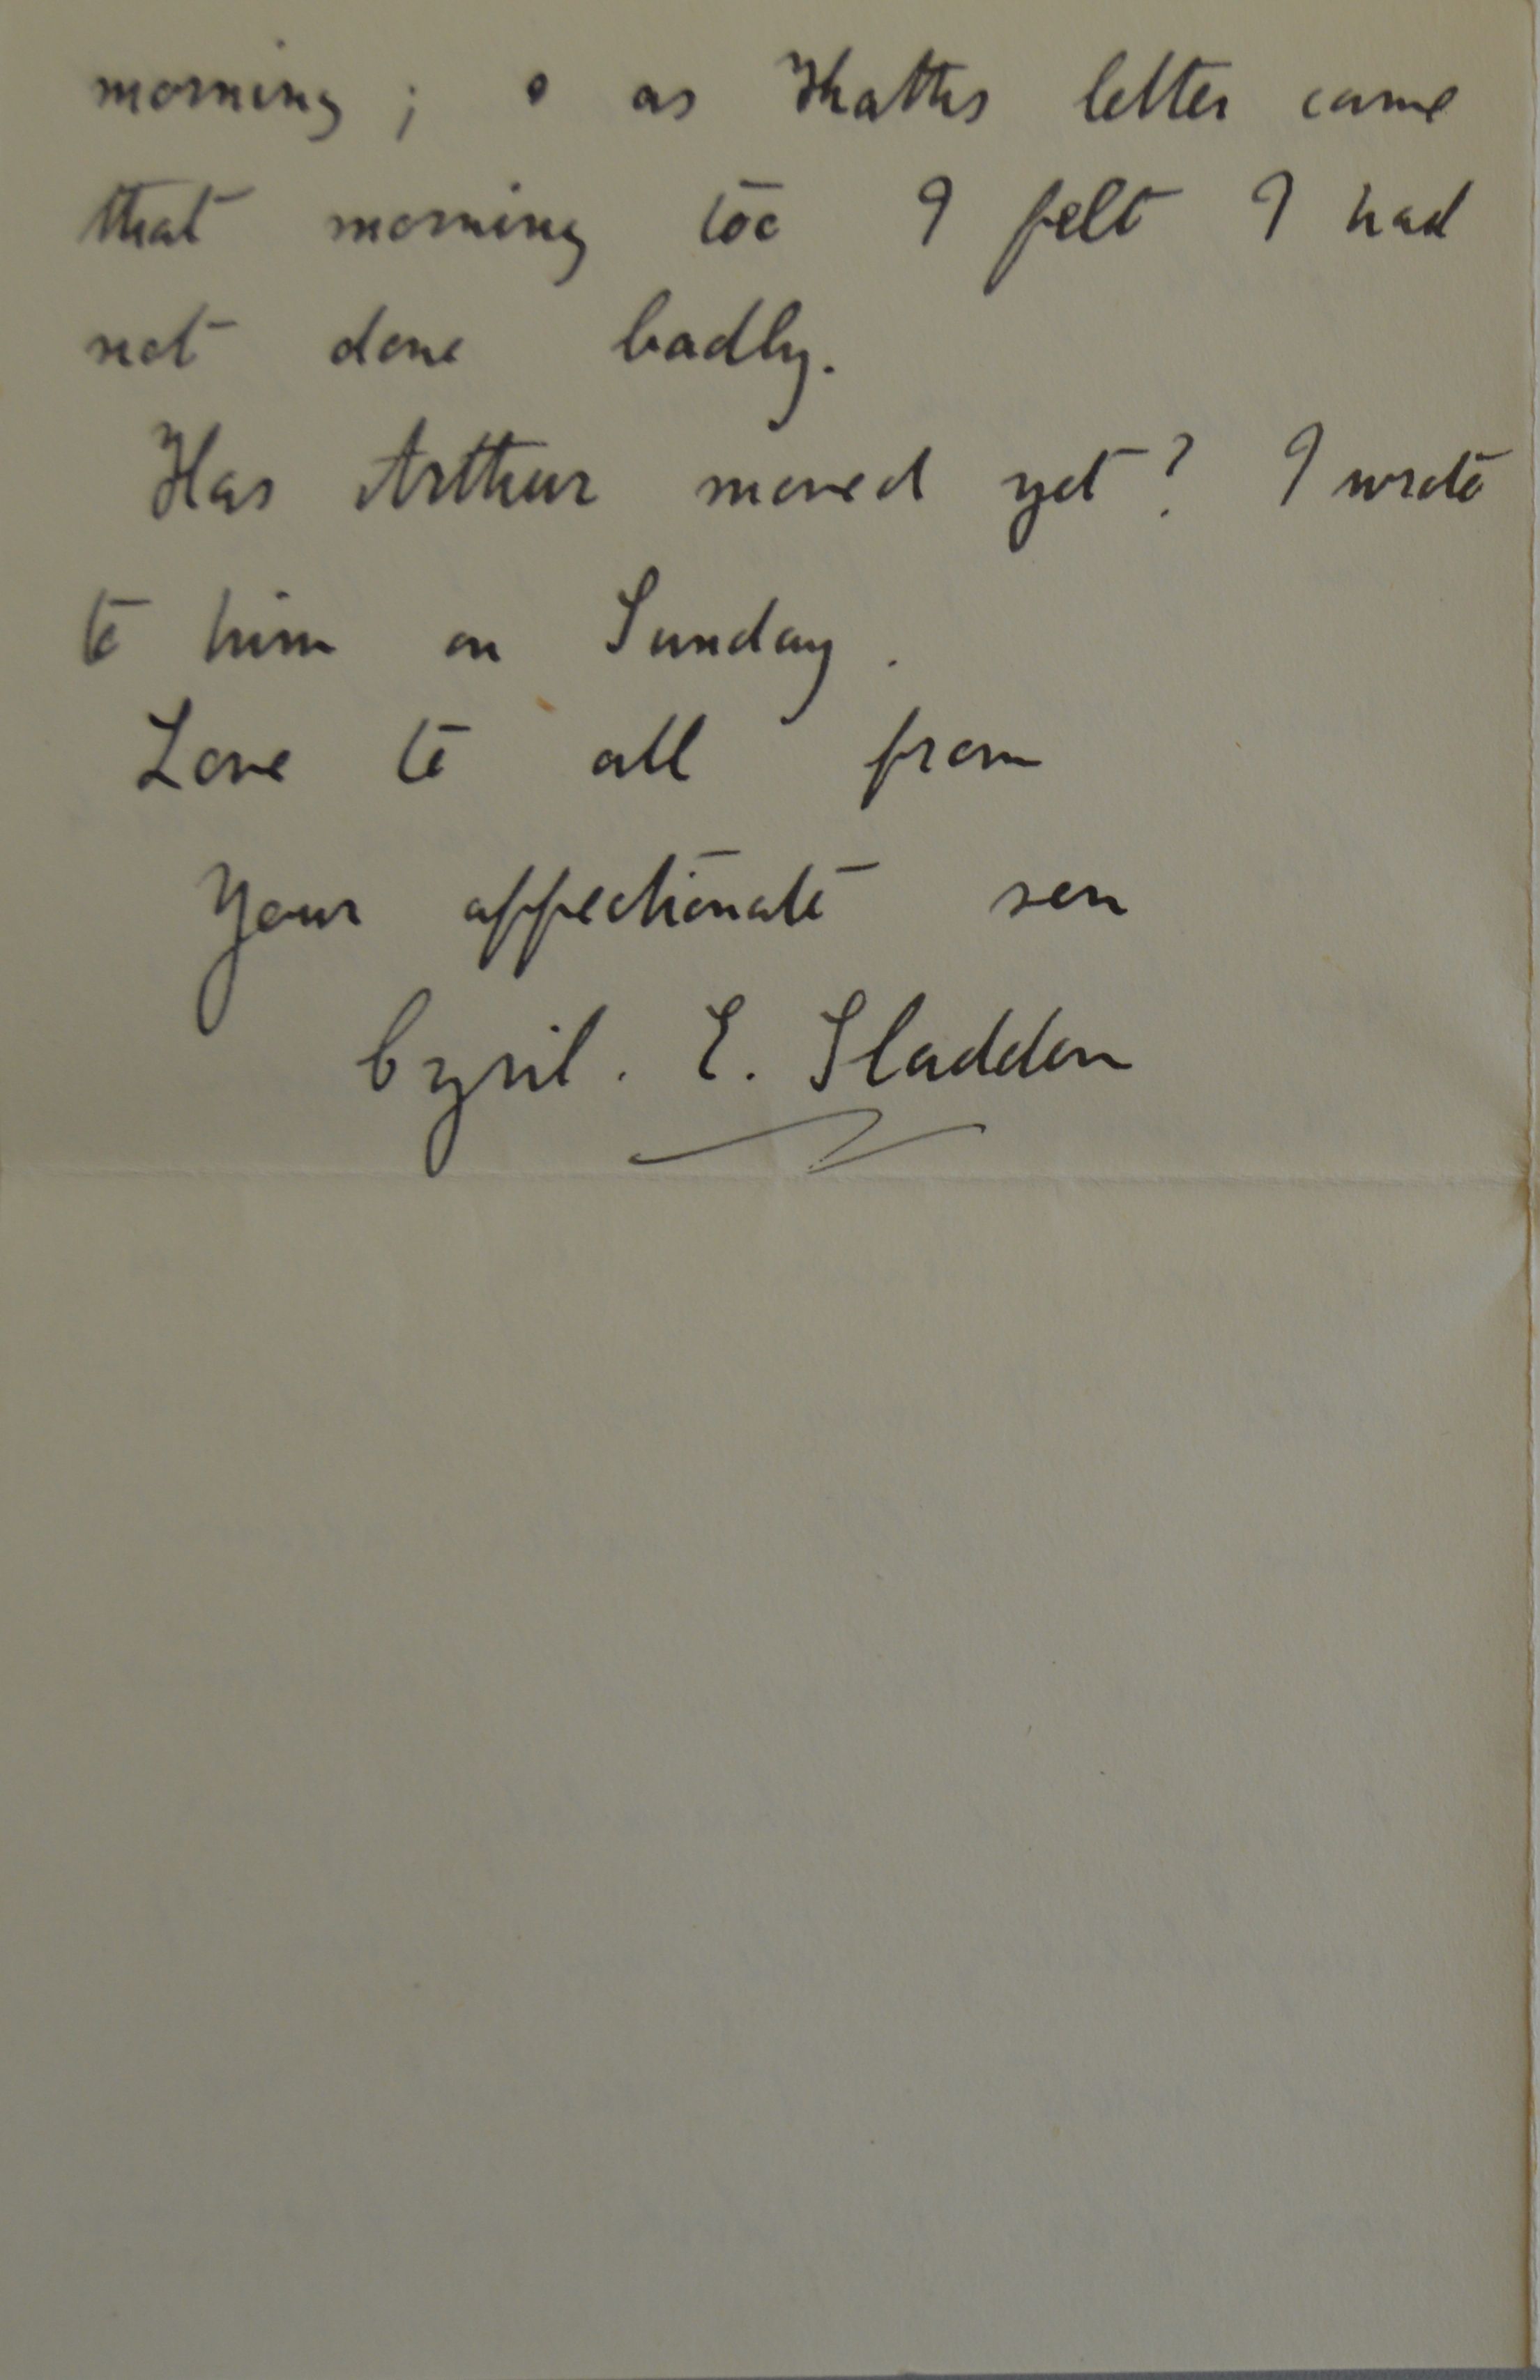 morning ; & as Kaths letter came
that morning too I felt I had
not done badly.
Has Arthur moved yet? I wrote
to him on Sunday.
Love to all from
Your affectionate son
Cyril. E. Sladden